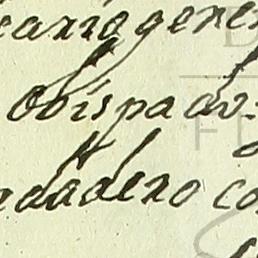 cario gene
obispado.
dadero co